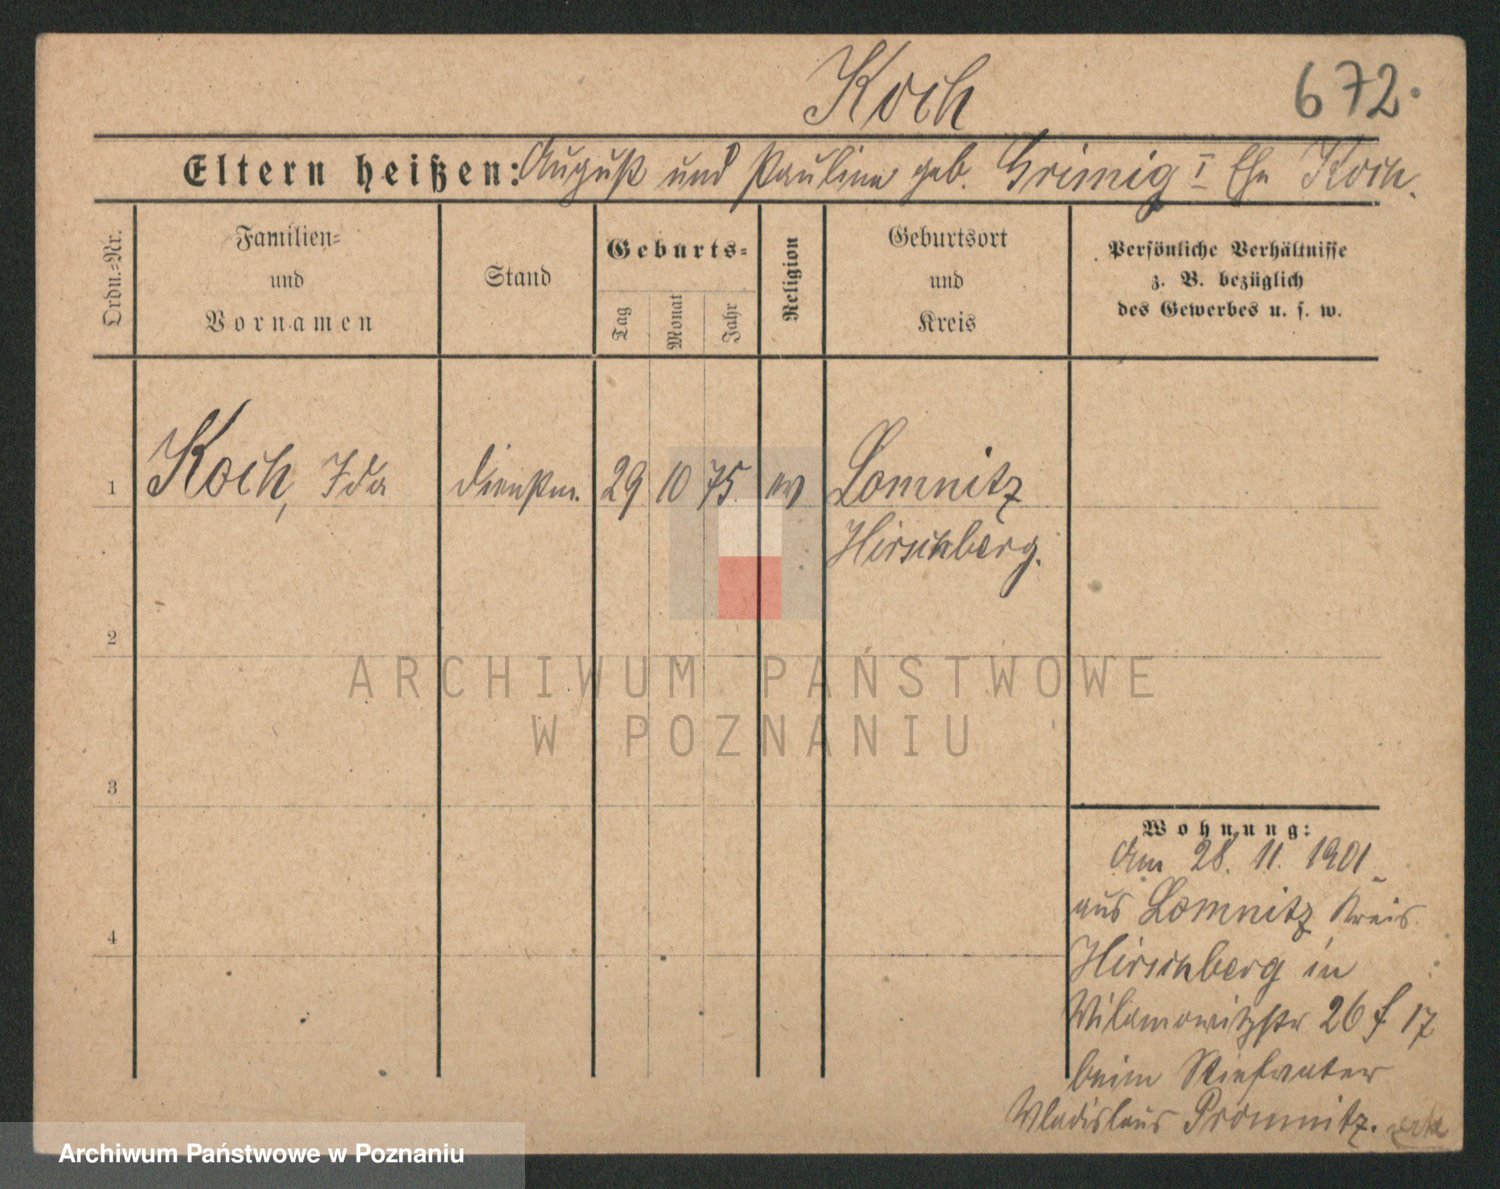 Koch
672.
Eltern heißen: August und Pauline geb. Grimmig I Ehe Koch.
Ordn.-Nr.
Familien-
und
Vornamen
Stand
Geburts-
Tag
Monat
Jahr
Religion
Geburtsort
und
Kreis
Persönliche Verhältnisse
z. B. bezüglich
des Gewerbes u. s. w.
1 Koch, Ida Dienstm. 29 10 75 ev Lomnitz
Hirschberg.
2
3
4
ARCHIWUM PAŃSTWOWE
W POZNANIU
Wohnung:
Am 28. 11. 1901
aus Lomnitz Kreis
Hirschberg in
Wilamowitzstr 26 f 17
beim Stiefvater
Wladislaus Promnitz.
Archiwum Państwowe w Poznaniu